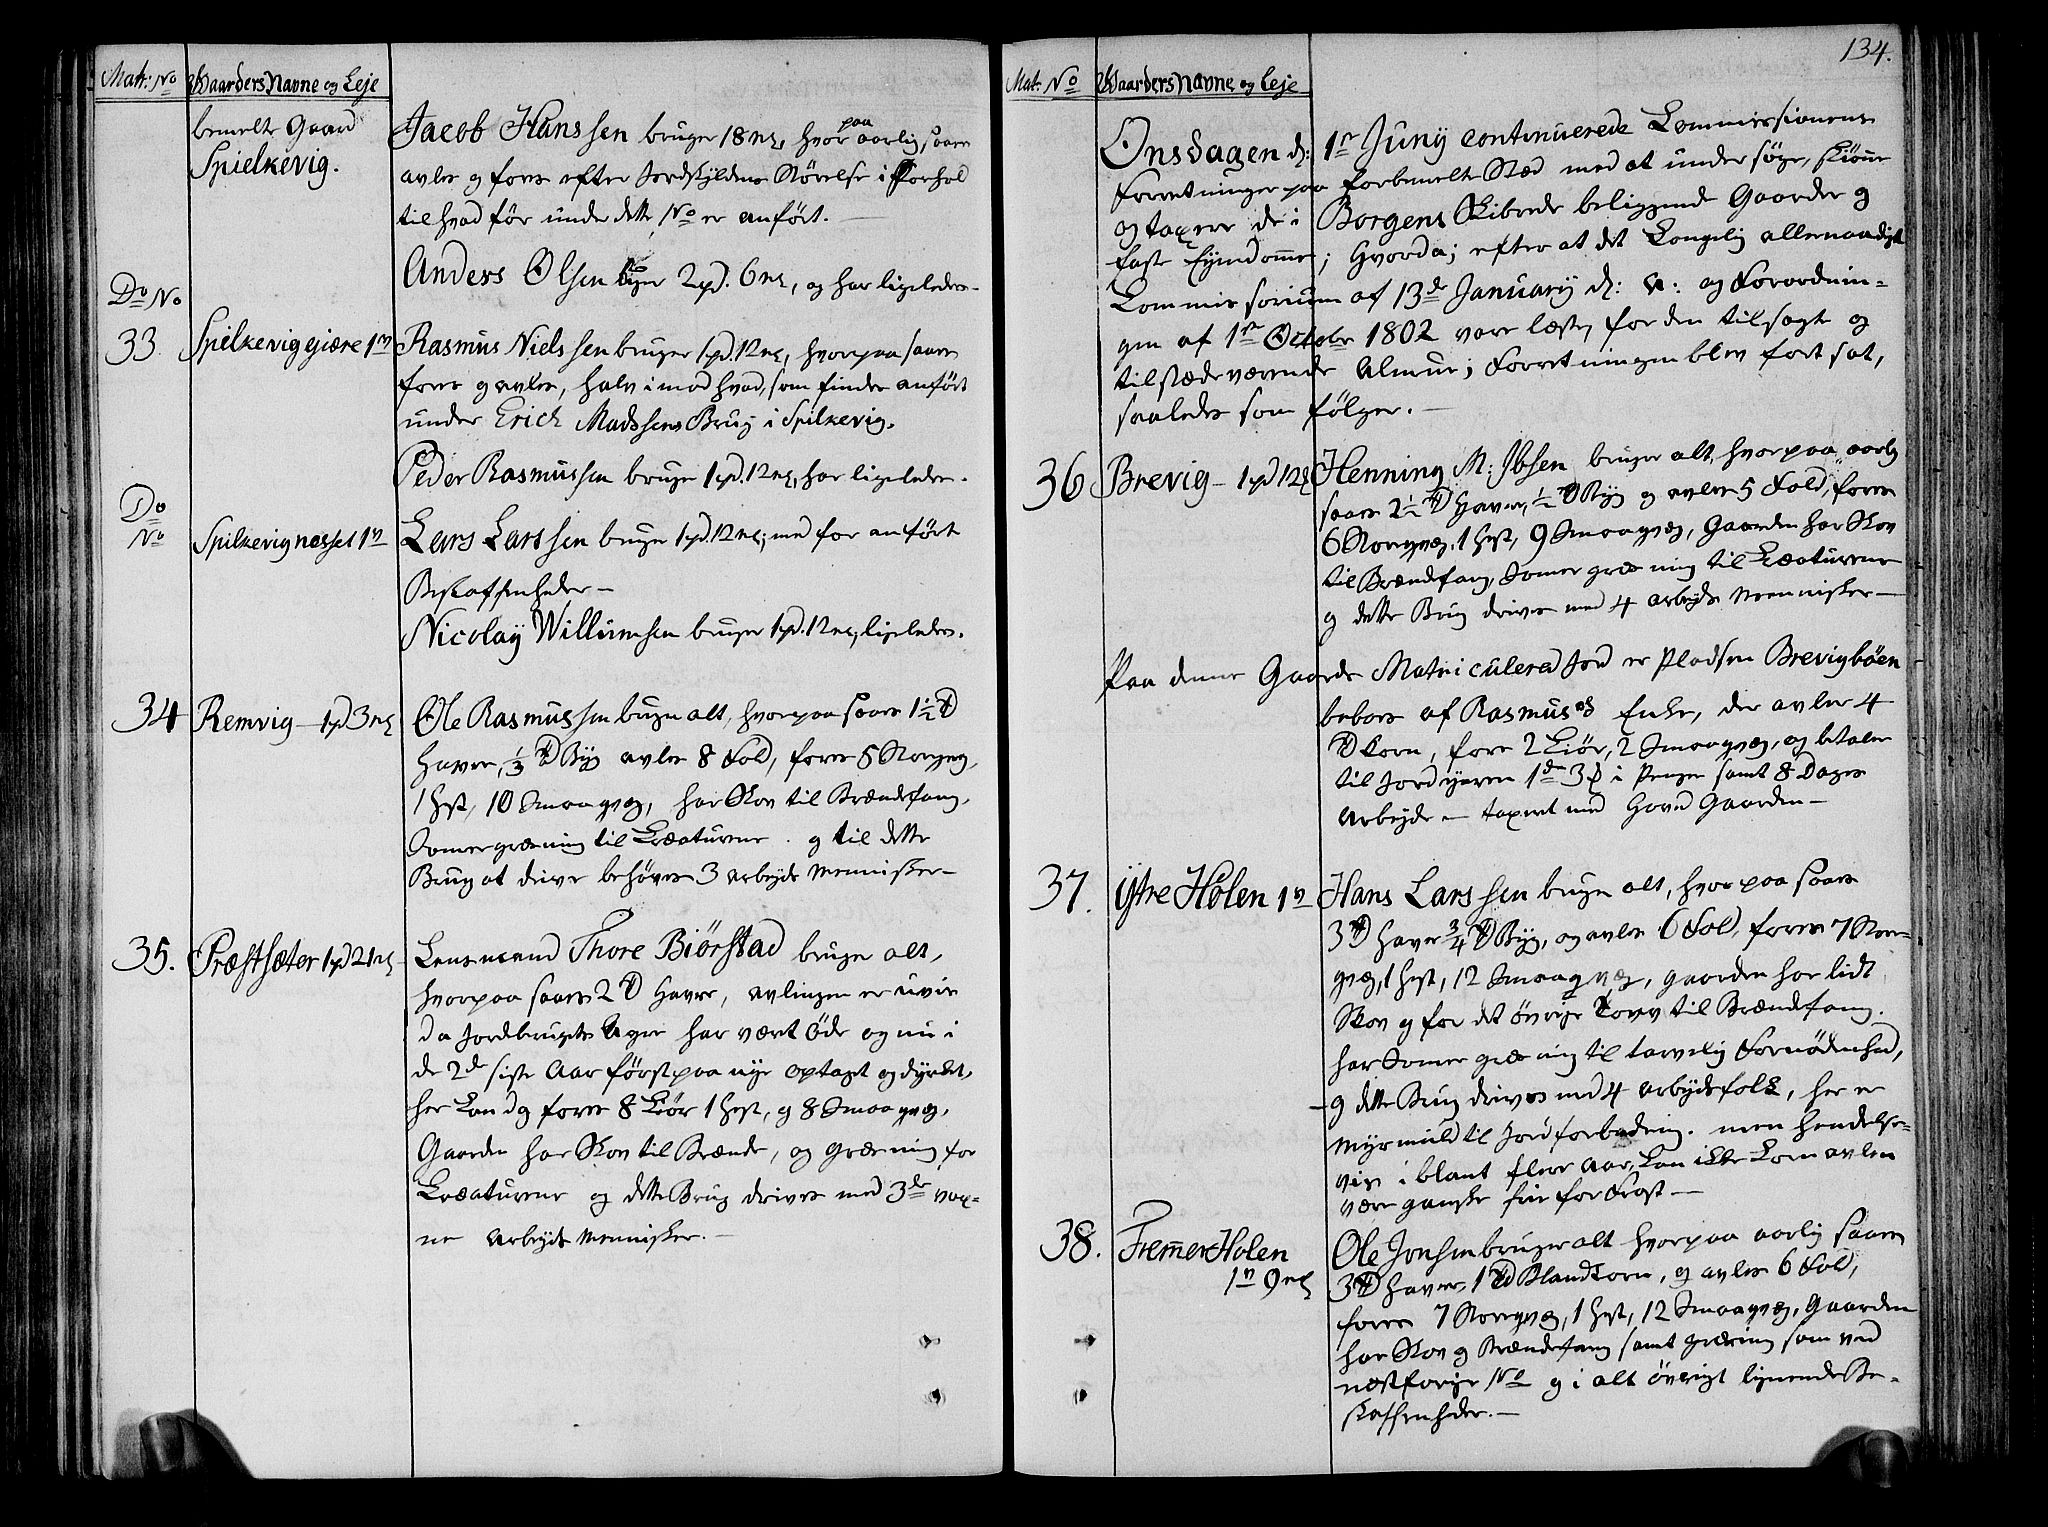 Matr: No Gaarders Navne og Leje
bemelte Gaard
Spielkevig.
Jacob Hanssen bruger 18 mk, hvor paa aarlig saaes
avles og fores efter Jordskyldens Størelse i Forhold
til hvad før under dette No er anført. —
Anders Olsen 2 pd. 6 mk, og har ligeledes —
Do No
33. Spilkevigejære 1 v
Rasmus Nielssen bruger 1 pd. 12 mk, hvorpaa saaes
fores og avles, halv imod hvad, som findes anført
under Erich Madssens Brug i Spilkevig.
Peder Rasmussen bruger 1 pd 12 mk, har ligeledes.
Do
No Spilkevignesset 1 v
Lars Larssen bruger 1 pd. 12 mk, med for anført
Beskaffenheder —
Nicolaÿ Willumsen bruger 1 pd. 12 mk, ligeledes.
34 Remvig — 1 pd 3 mk
Ole Rasmussen bruger alt, hvorpaa saaes 1½ Td
Havre, ⅓ Td Byg avles 8 Fold, fores 5 Storqvæg,
1 Hest, 10 Smaaqvæg, har Skov til Brændefang,
Somergræsning til Creaturene. og til dette
Brug at drive behøves 3 Arbejds Mennisker —
35. Præstsæter 1 pd 21 mk
Lensmand Thore Biørstad bruger alt,
hvorpaa saaes 2 Td Havre, Avlingen er uvis
da Jordbrugets Agre har vært Øde og nu i
de 2de siste Aar først paa nye optaget og dyrket,
her kand og fores 8 Kiør 1 Hest, og 8 Smaaqvæg,
Gaarden har Skov til Brænde, og Græsning for
Creaturene og dette Brug drives med 3de vox-
ne Arbejds Mennisker. —
134.
Mat: No Gaarders Navne og Leje
Onsdagen d: 1te Junÿ continuerede Commissionens
Forretninger paa forbemelte Stæd med at undersøge, skiøne
og taxere de i Borgens Skibrede beliggende Gaarder og
faste Eyendomme; Hvorda; efter at det Kongelig allernaadigst
Commissorium af 13de Januarÿ d: A: og Forordnin-
gen af 1te Octobr 1802 vare læste, for den tilsagte og
tilstædeværende Almue; Forretningen blev fortsat,
saaledes som følger. —
36 Brevig — 1 pd 12 mk
Henning M: Ibsen bruger alt, hvorpaa aarlig
saaes 2½ Td Havre, ½ Td Byg og avles 5 Fold, fores
6 Storqvæg, 1 Hest, 9 Smaaqvæg, Gaarden har Skov
til Brændefang, Somer græsning til Creaturene
og dette Brug drives med 4 Arbejds Mennisker —
Paa denne Gaards Matriculered Jord er Pladsen Brevigbøen
beboes af Rasmus Enke, der avler 4
Td Korn, fore 2 Kiør, 2 Smaaqvæg, og betaler
til Jordejeren 1 3 i Penge samt 8 Dages
Arbejde — taxeret med Hoved Gaarden —
37. Ÿtre Holen 1 v
Hans Larssen bruger alt, hvorpaa saaes
3 Td Havre ¾ Td Byg, og avles 6 Fold, fores 7 Stor-
qvæg, 1 Hest, 12 Smaaqvæg, Gaarden har lidt
Skov og for det øvrige Torv til Brændefang.
har Somer græsning til tarvelig Fornødenhed,
og dette Brug drives med 4 Arbejdsfolk, her er
Myrmuld til Jordforbedring. men hendelse-
vis iblant flere Aar, kan ikke Kornavlen
være ganske frie for Frost —
38. Fremer Holen
1 v 9 mk
Ole Jonsen bruger alt hvorpaa aarlig saaes
3 Td Havre, 1 Td Blandkorn, og avles 6 Fold,
fores 7 Storqvæg, 1 Hest, 12 Smaaqvæg, Gaarden
har Skov og Brændefang samt græsning som ved
næstforige No og i alt øvrigt lignende Be-
skaffenheder. —